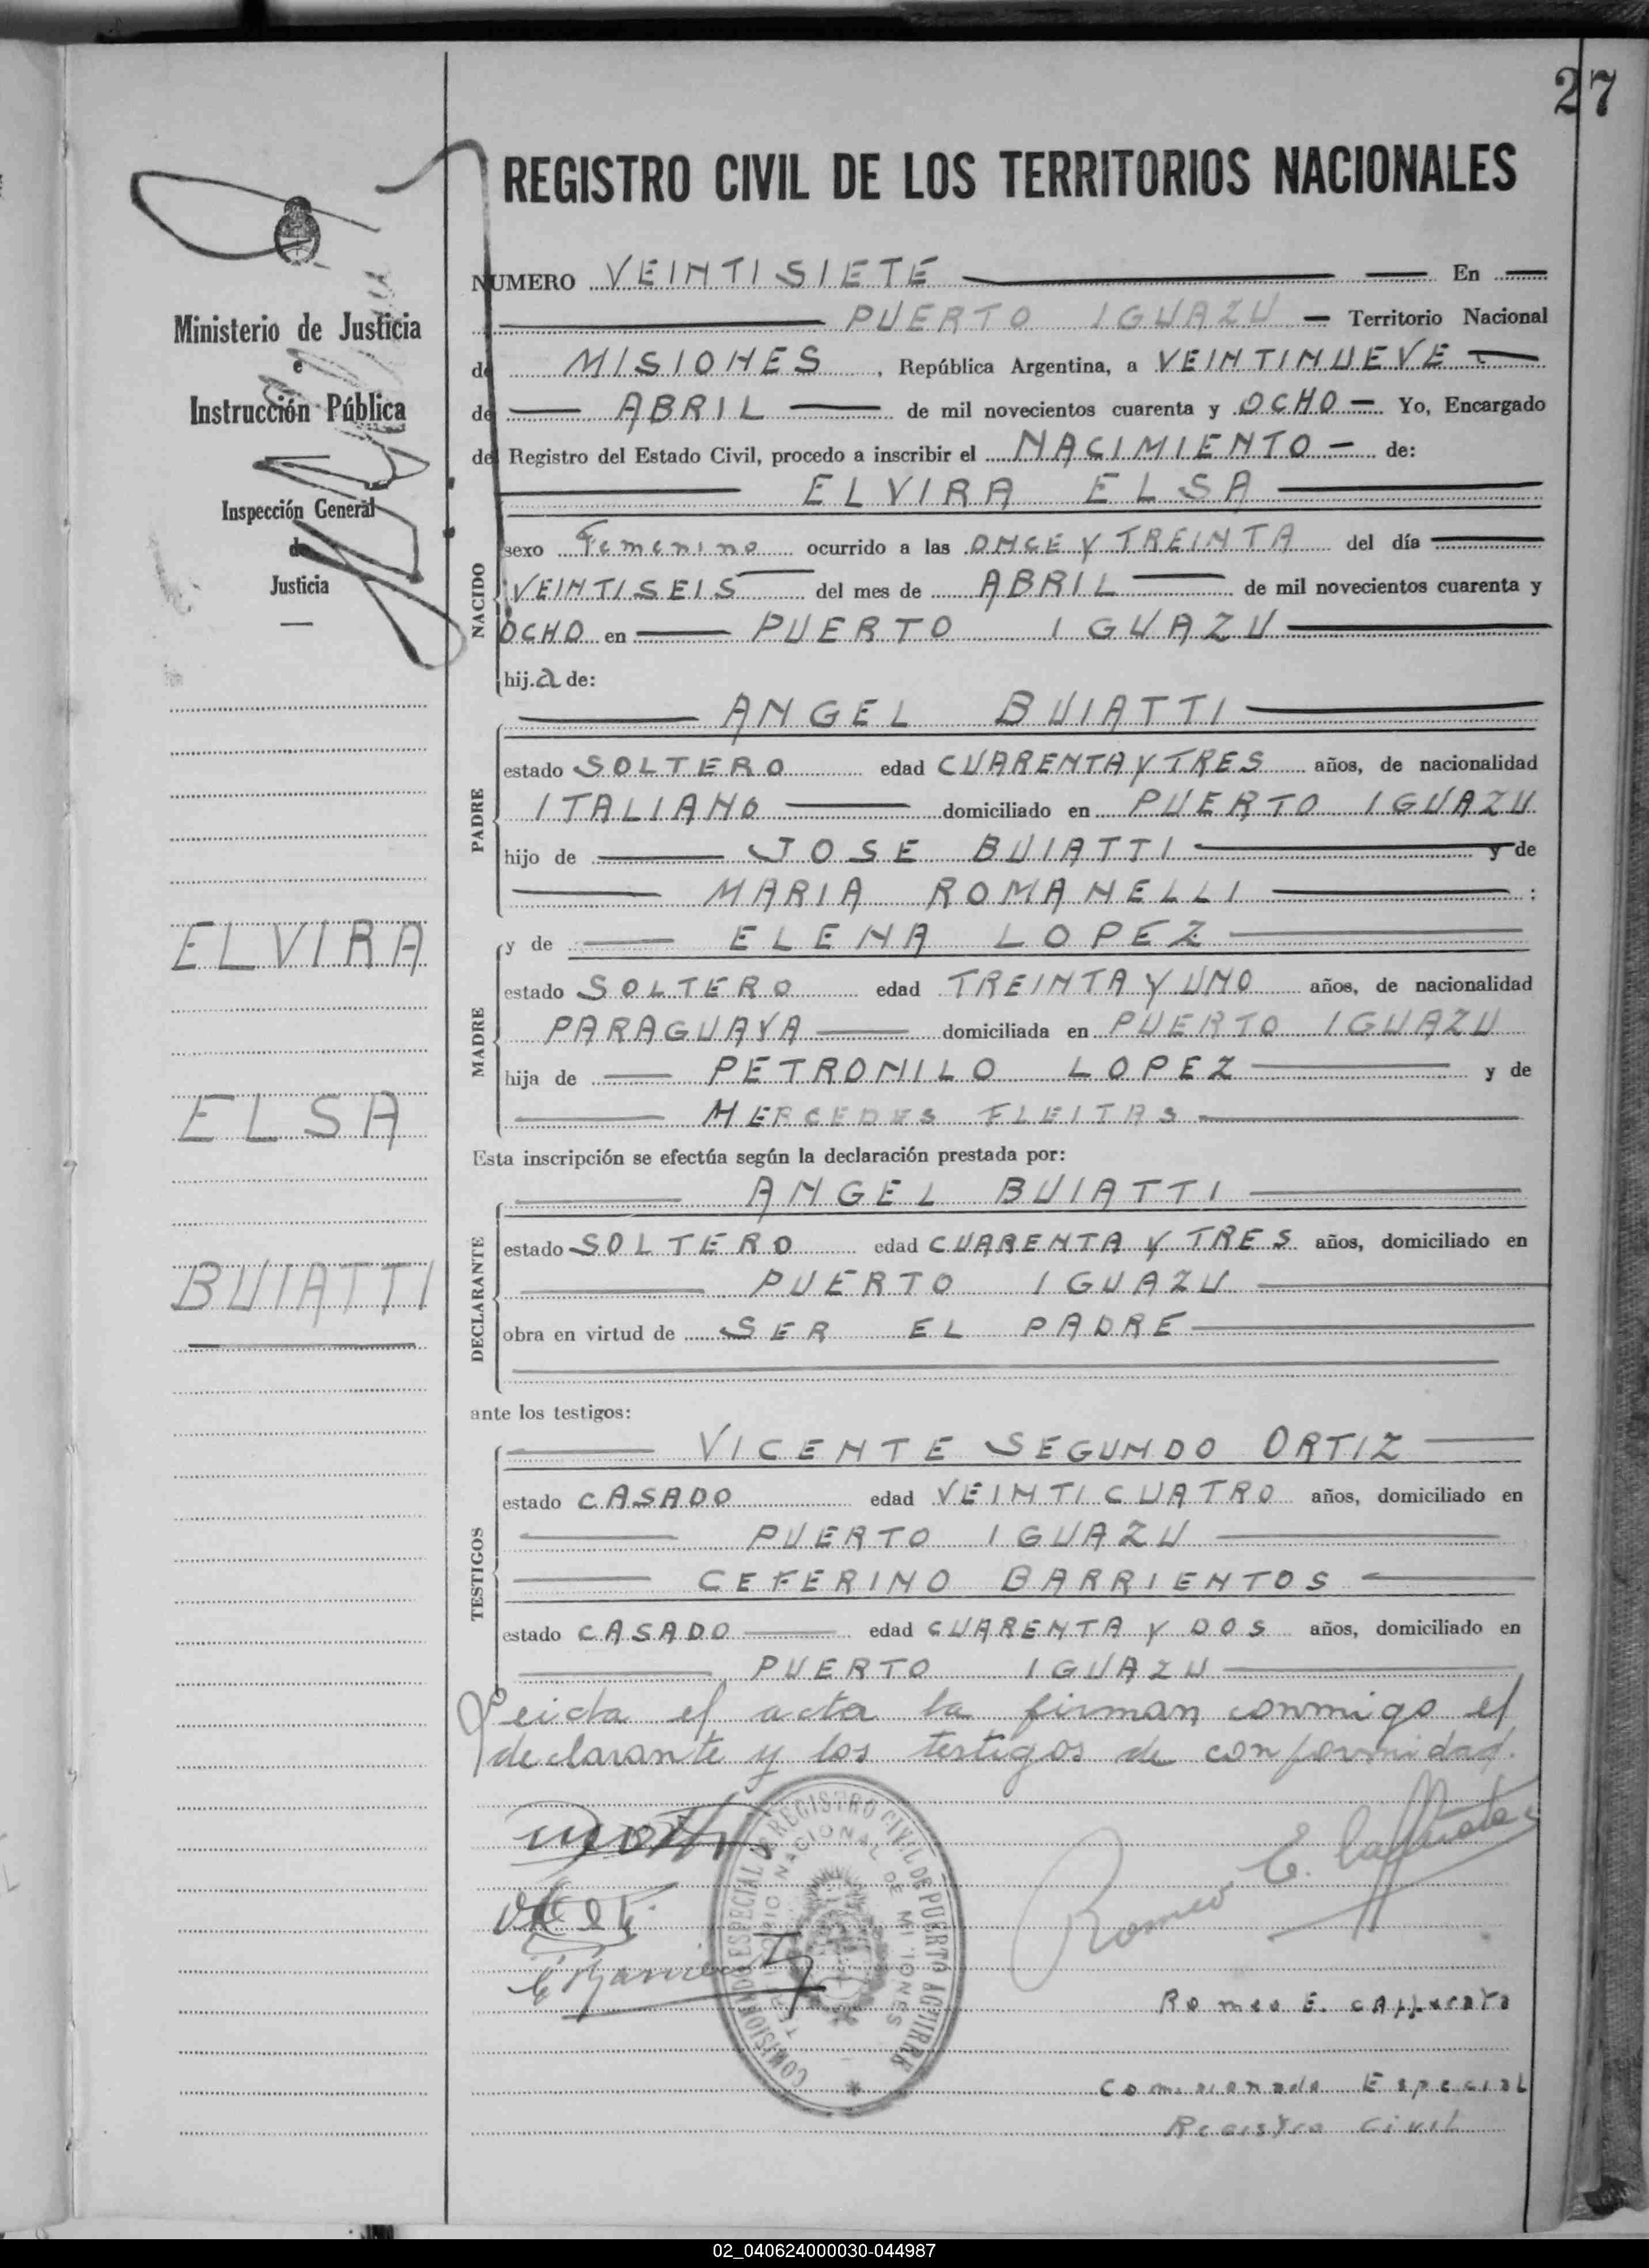 27
REGISTRO CIVIL DE LOS TERRITORIOS NACIONALES
Ministerio de Justicia
e
Instrucción Pública
Inspección General
de
Justicia
ELVIRA
ELSA
BUIATTI
NUMERO VEINTISIETE En
PUERTO IGUAZU Territorio Nacional
de MISIONES, República Argentina, a VEINTINUEVE
de ABRIL de mil novecientos cuarenta y OCHO Yo, Encargado
del Registro del Estado Civil, procedo a inscribir el NACIMIENTO de:
ELVIRA ELSA
NACIDO
sexo Femenino ocurrido a las ONCE Y TREINTA del día
VEINTISEIS del mes de ABRIL de mil novecientos cuarenta y
OCHO en PUERTO IGUAZU
hija de:
ANGEL BUIATTI
PADRE
estado SOLTERO edad CUARENTA Y TRES años, de nacionalidad
ITALIANO domiciliado en PUERTO IGUAZU
hijo de JOSE BUIATTI y de
MARIA ROMANELLI ;
y de ELENA LOPEZ
MADRE
estado SOLTERO edad TREINTA Y UNO años, de nacionalidad
PARAGUAYA domiciliada en PUERTO IGUAZU
hija de PETRONILO LOPEZ y de
MERCEDES FLEITAS
Esta inscripción se efectúa según la declaración prestada por:
ANGEL BUIATTI
DECLARANTE
estado SOLTERO edad CUARENTA Y TRES años, domiciliado en
PUERTO IGUAZU
obra en virtud de SER EL PADRE
ante los testigos:
VICENTE SEGUNDO ORTIZ
TESTIGOS
estado CASADO edad VEINTICUATRO años, domiciliado en
PUERTO IGUAZU
CEFERINO BARRIENTOS
estado CASADO edad CUARENTA Y DOS años, domiciliado en
PUERTO IGUAZU
Leida el acta la firman conmigo el
declarante y los testigos de conformidad.
REGISTRO CIVIL DE PUERTO AGUIRRE
COMISIONADO ESPECIAL
TERRITORIO NACIONAL DE MISIONES
Romeo E.
Romeo E.
Comisionado Especial
Registro Civil
02_040624000030-044987